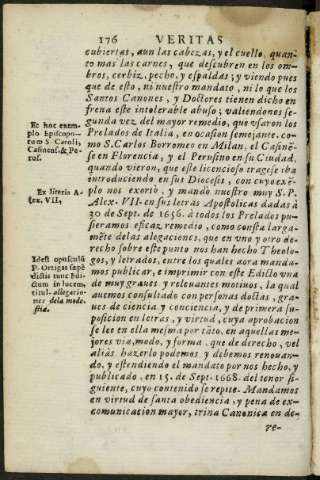 176 VERITAS
cubiertas, aun las cabezas, y el cuello, quan-
to mas las carnes, que descubren en los om-
bros, cerbiz, pecho, y espaldas; y viendo pues
que de esto, ni nuestro mandato, ni lo que los
Santos Canones, y Doctores tienen dicho en
frena este intolerable abuso; valiendonos se-
gunda vez del mayor remedio, que vsaron los
Prelados de Italia, en ocasion semejante, co-
mo S. Carlos Borromeo en Milan, el Casinẽ-
se en Florencia, y el Perusino en su Ciudad,
quando vieron, que este licencioso trage se iba
introduciendo en sus Diocesis, con cuyo exẽ-
plo nos exortò, y mandò nuestro muy S. P.
Alex. VII. en sus letras Apostolicas dadas à
30 de Sept. de 1656. à todos los Prelados pu-
sieramos eficaz remedio, como consta larga-
mẽte de las alegaciones, que en vno y otro de-
recho sobre este punto nos han hecho Theolo-
gos, y letrados, entre los quales aora manda-
mos publicar, e imprimir con este Edicto vna
de muy graues y releuantes motiuos, la qual
auemos consultado con personas doctas, gra-
ues de ciencia y conciencia, y de primera su-
posicion en letras, y virtud, cuya aprobacion
se lee en ella mejma por tãto, en aquellas me-
jores via, modo, y forma, que de derecho, vel
aliàs hazerlo podemos, y debemos renouan-
do, y estendiendo el mandato por nos hecho, y
publicado, en 15. de Sept. 1668. del tenor si-
guiente, cuyo contenido se repite. Mandamos
en virtud de santa obediencia, y pena de ex-
comunicacion mayor, trina Canonica en de-
re-
Ec hoc exem-
plo Episcopo-
rum S. Caroli,
Casinens. & Pe-
rus.
Ex literis A-
lex. VII,
Idest opusculũ
P. Ortigas sapẽ
dictis nunc edi-
ctum in lucem,
titul. allegacio-
nes dela mode-
stia.